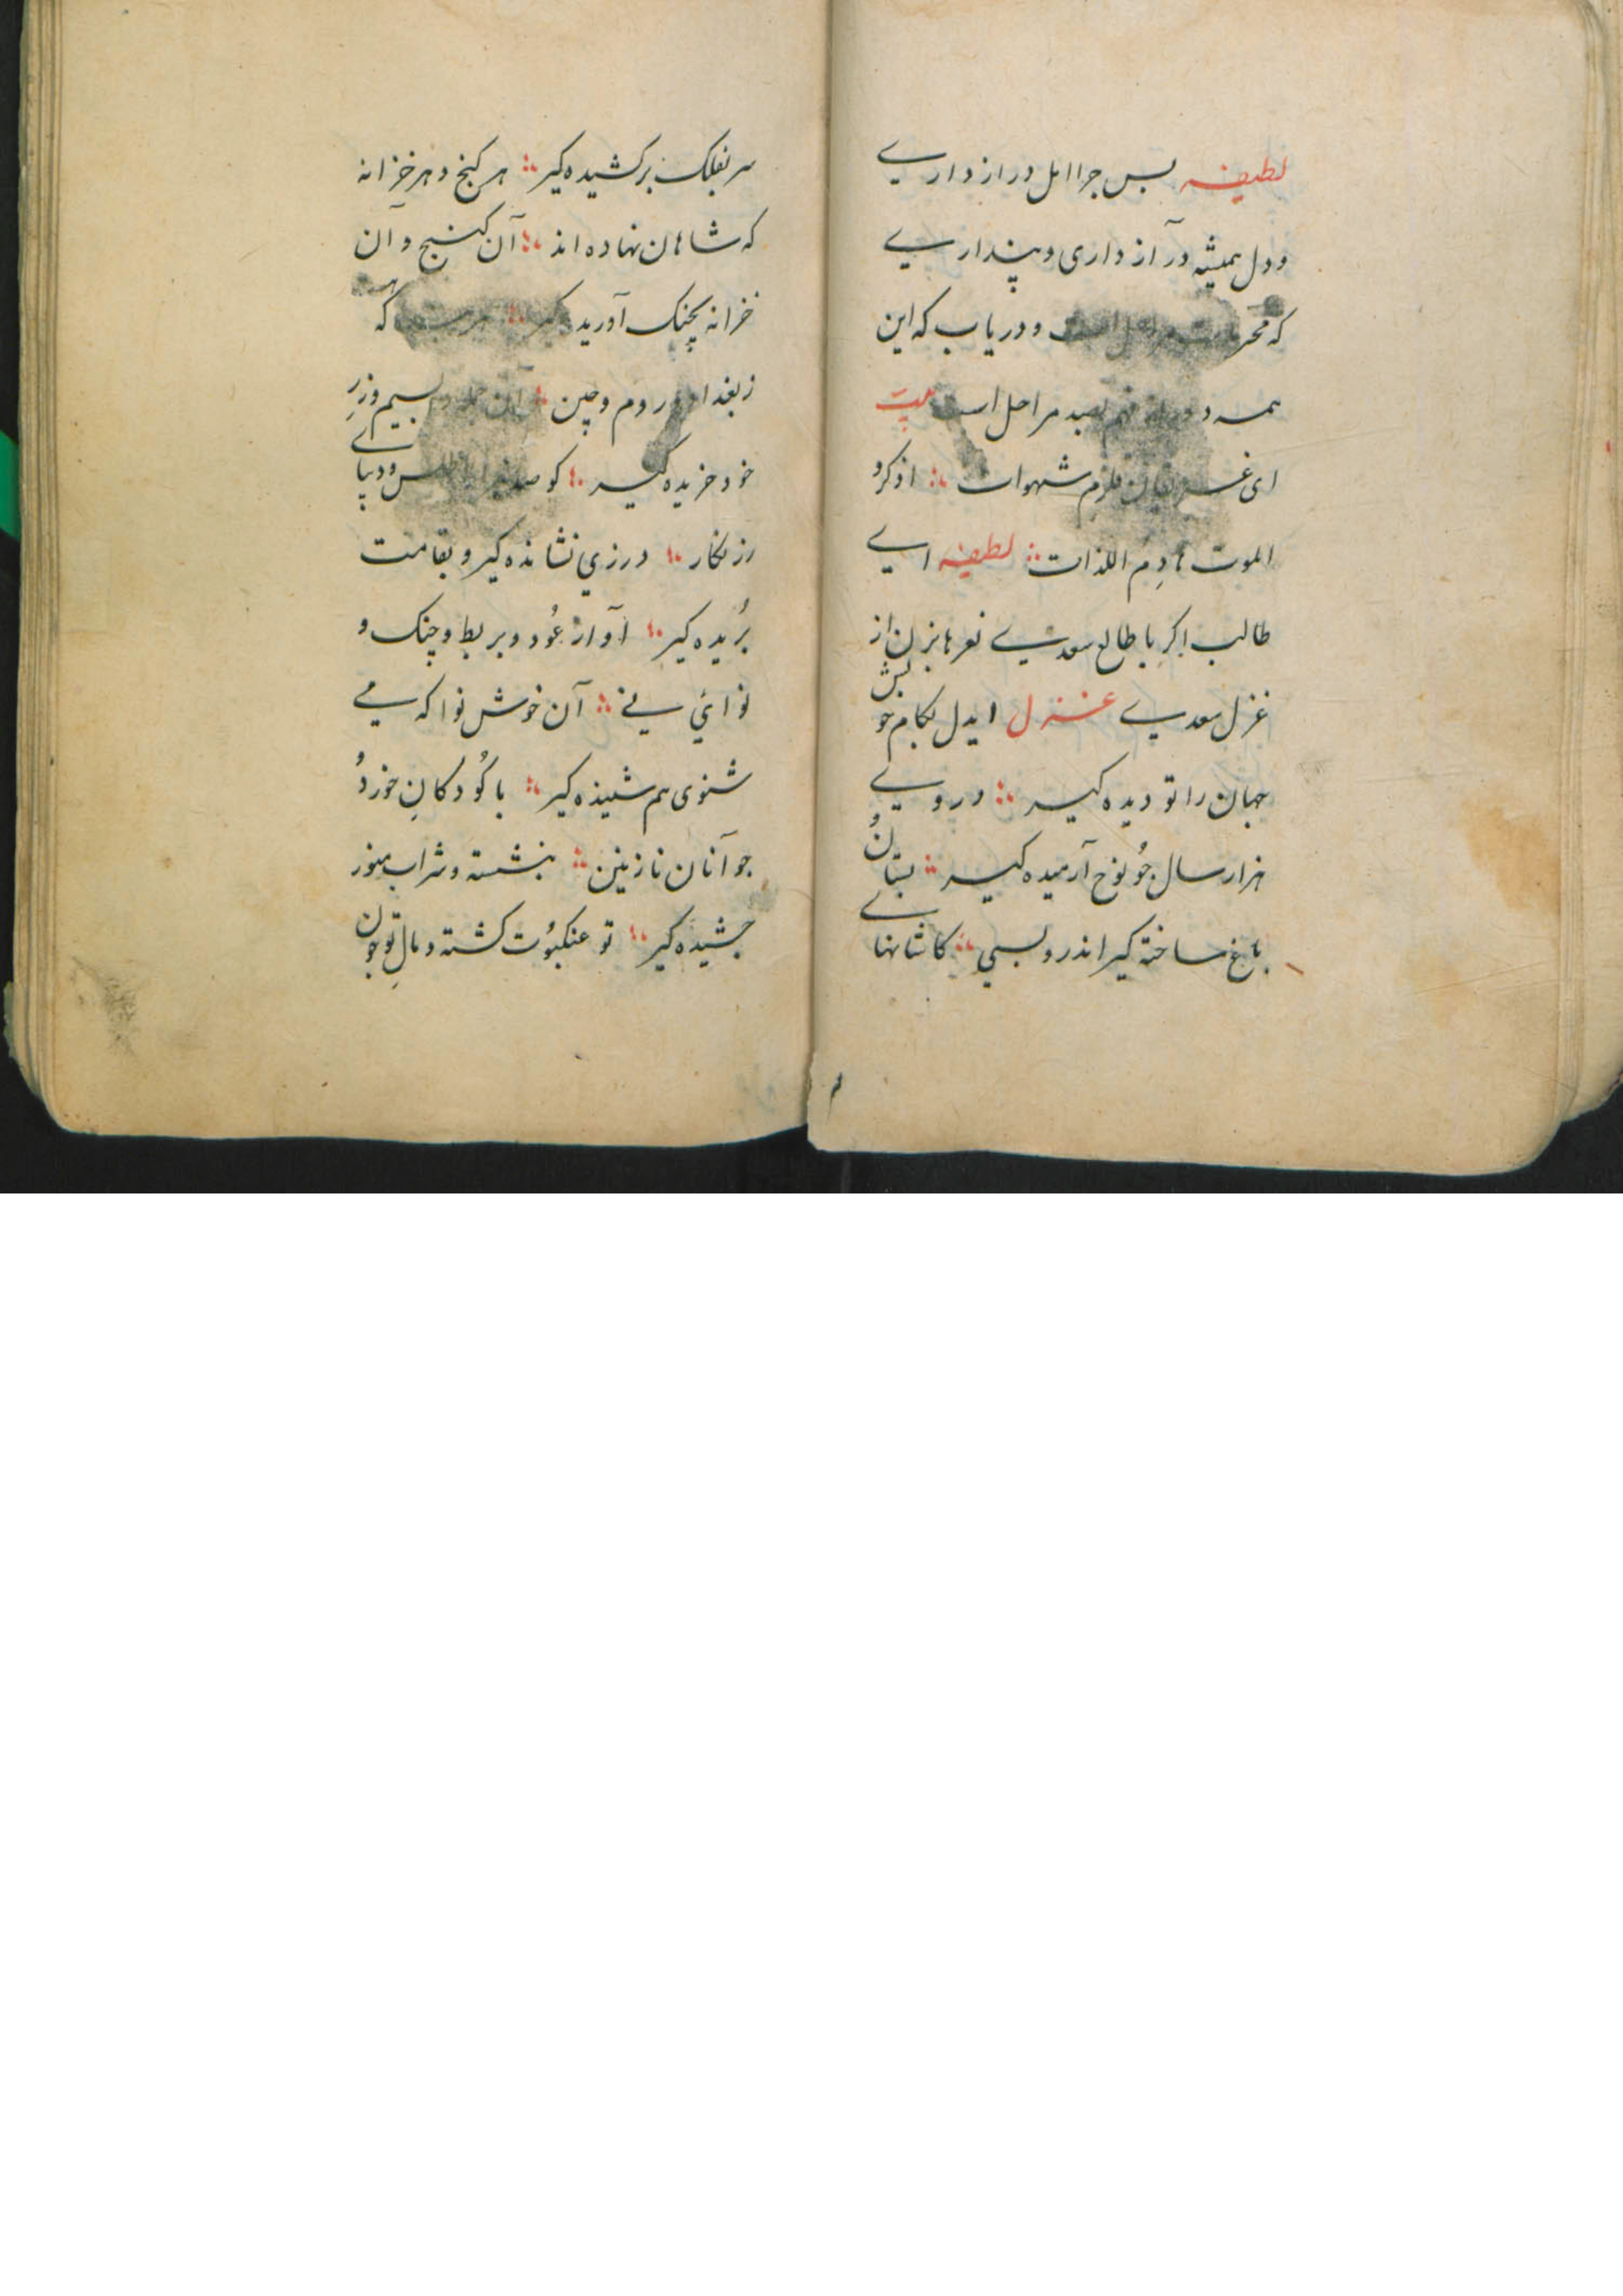 لطیفه بس چرا امل دراز داری
و دل همیشه در آز داری و پنداری
که و دریاب که این
همه مراحل است بیت
ای شهوات ∴ اذکروا
الموت هادِم اللذات ∴ لطیفه ای
طالب اگر با طالع سعدی نعرها بزن از
غزل سعدی غزل ایدل بکام خویش
جهان را تو دیده گیر ∴ در وی
هزار سال چُو نوح آرمیده گیر ∴ بستانُ
باغ ساخته گیر اندرو بسی ∴ کاشانها
سر بفلک برکشیده گیر ∴ هر گنج و هر خزانه
که شاهان نهاده اند ∴ آن گنج و آن
خزانه بچنک آورید گیر ∴ که
روم و چین ∴ بسیم و زرِ
خود خریده گیر ∴ کو و دیبای
زرنکار ∴ درزی نشانده گیر و بقامت
بُریده گیر ∴ آواز عُود و بربط و چنک و
نوای نی ∴ آن خوش نوا که می
شنوی هم شنیده گیر ∴ با کُودکانِ خوردُ
جوآنان نازنین ∴ بنشسته و شراب
چشیده گیر ∴ تو عنکبُوت کشته و مالِ تو چون